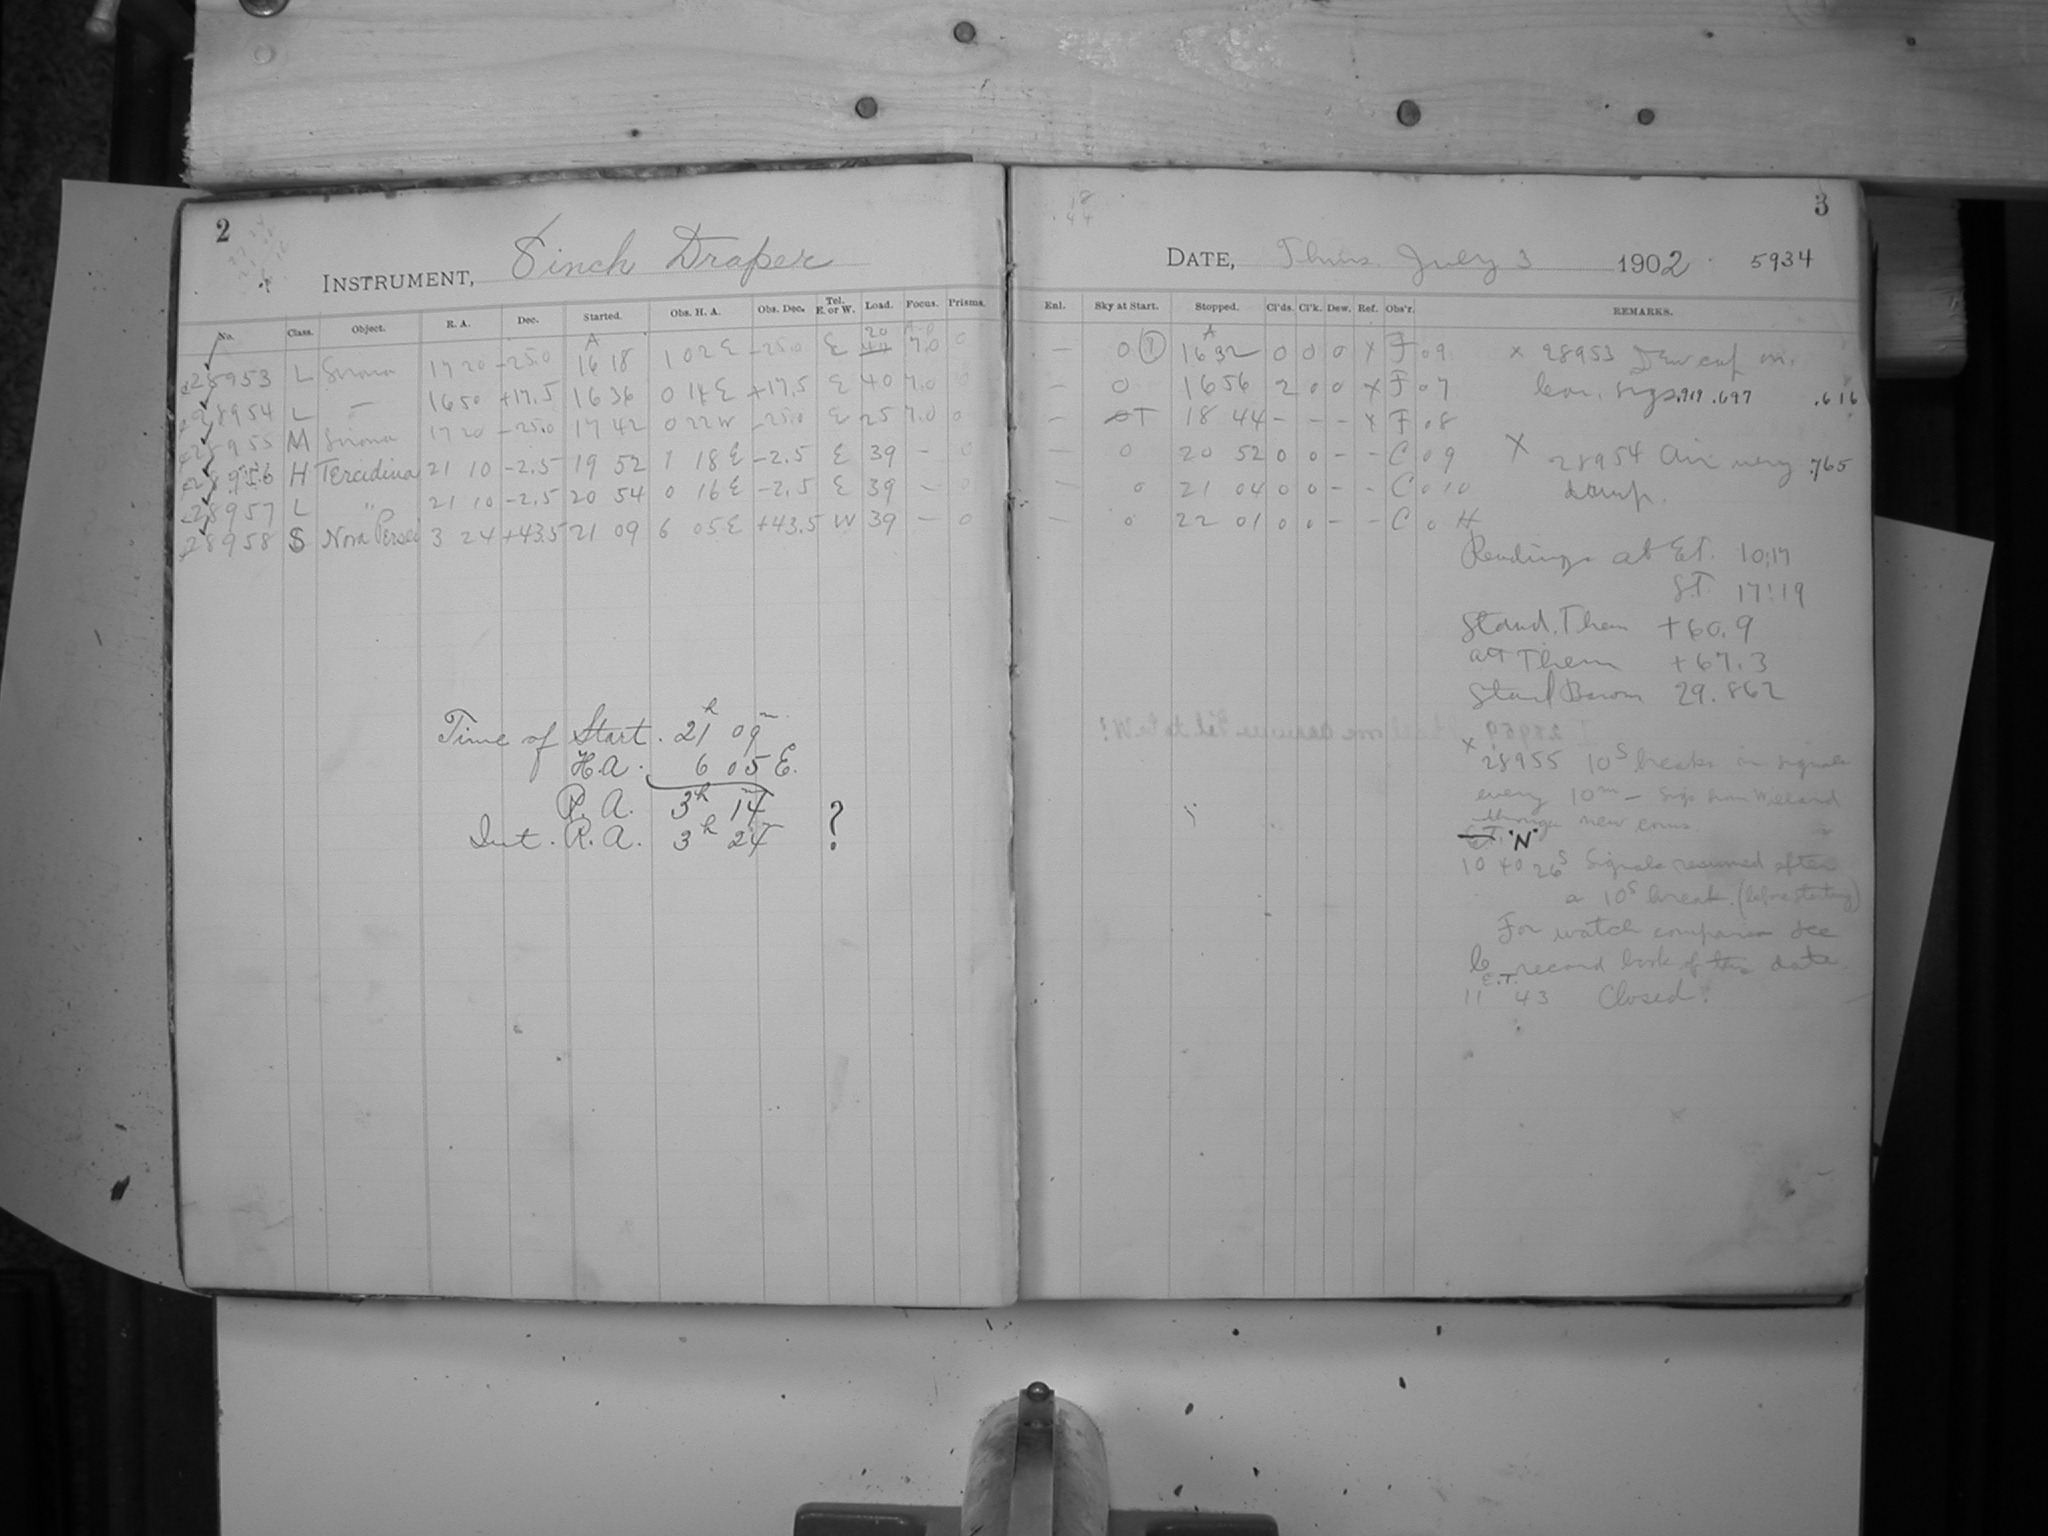 2
INSTRUMENT, 8 inch Draper
No. Class. Object. R. A. Dec. Started. Obs. H. A. Obs. Dec. Tel. E. or W. Load. Focus. Prisms.
28953 L Sirona 17 20 -25.0 A 16 18 1 02 E -25.0 E 20 44 7.0 0
28954 L — 16 50 +17.5 16 36 0 14 E +17.5 E 40 7.0
28955 M Sirona 17 20 -25.0 17 42 0 22 W -25.0 E 25 7.0 0
28956 H Tercidina 21 10 -2.5 19 52 1 18 E -2.5 E 39 - 0
28957 L " 21 10 -2.5 20 54 0 16 E -2.5 E 39 - 0
28958 S Nova Persei 3 24 +43.5 21 09 6 05 E +43.5 W 39 - 0
Time of Start. 21h 09m
H.A. 6 05 E.
R. A. 3h 14m
Int. R.A. 3h 24m ?
18
44
3
DATE, Thurs July 3 1902. 5934
Enl. Sky at Start. Stopped. Cl'ds. Cl'k. Dew. Ref. Obs'r. REMARKS.
— 0 A 16 32 0 0 0 x F 09 x 28953 Dew cap on.
— 0 16 56 2 0 0 x F 07 .719 .697 .616
— 0T 18 44 - - - x F 08
— 0 20 52 0 0 - - C 09 X 28954 Air very .765
— 0 21 04 0 0 - - C 0 10 damp.
— 0 22 01 0 0 - - C 0 11
Readings at E.T. 10:17
S.T. 17:19
Stand. Them +60.9
att Them +67.3
Stand Barom 29.862
x 28955 10s breaks in signals
every 10m — Sigs from Willand
through new
E.T. "N"
10 40 26s Signals resumed after
a 10s break. (before starting)
For watch comparison see
record book of this date.
E.T.
11 43 Closed.